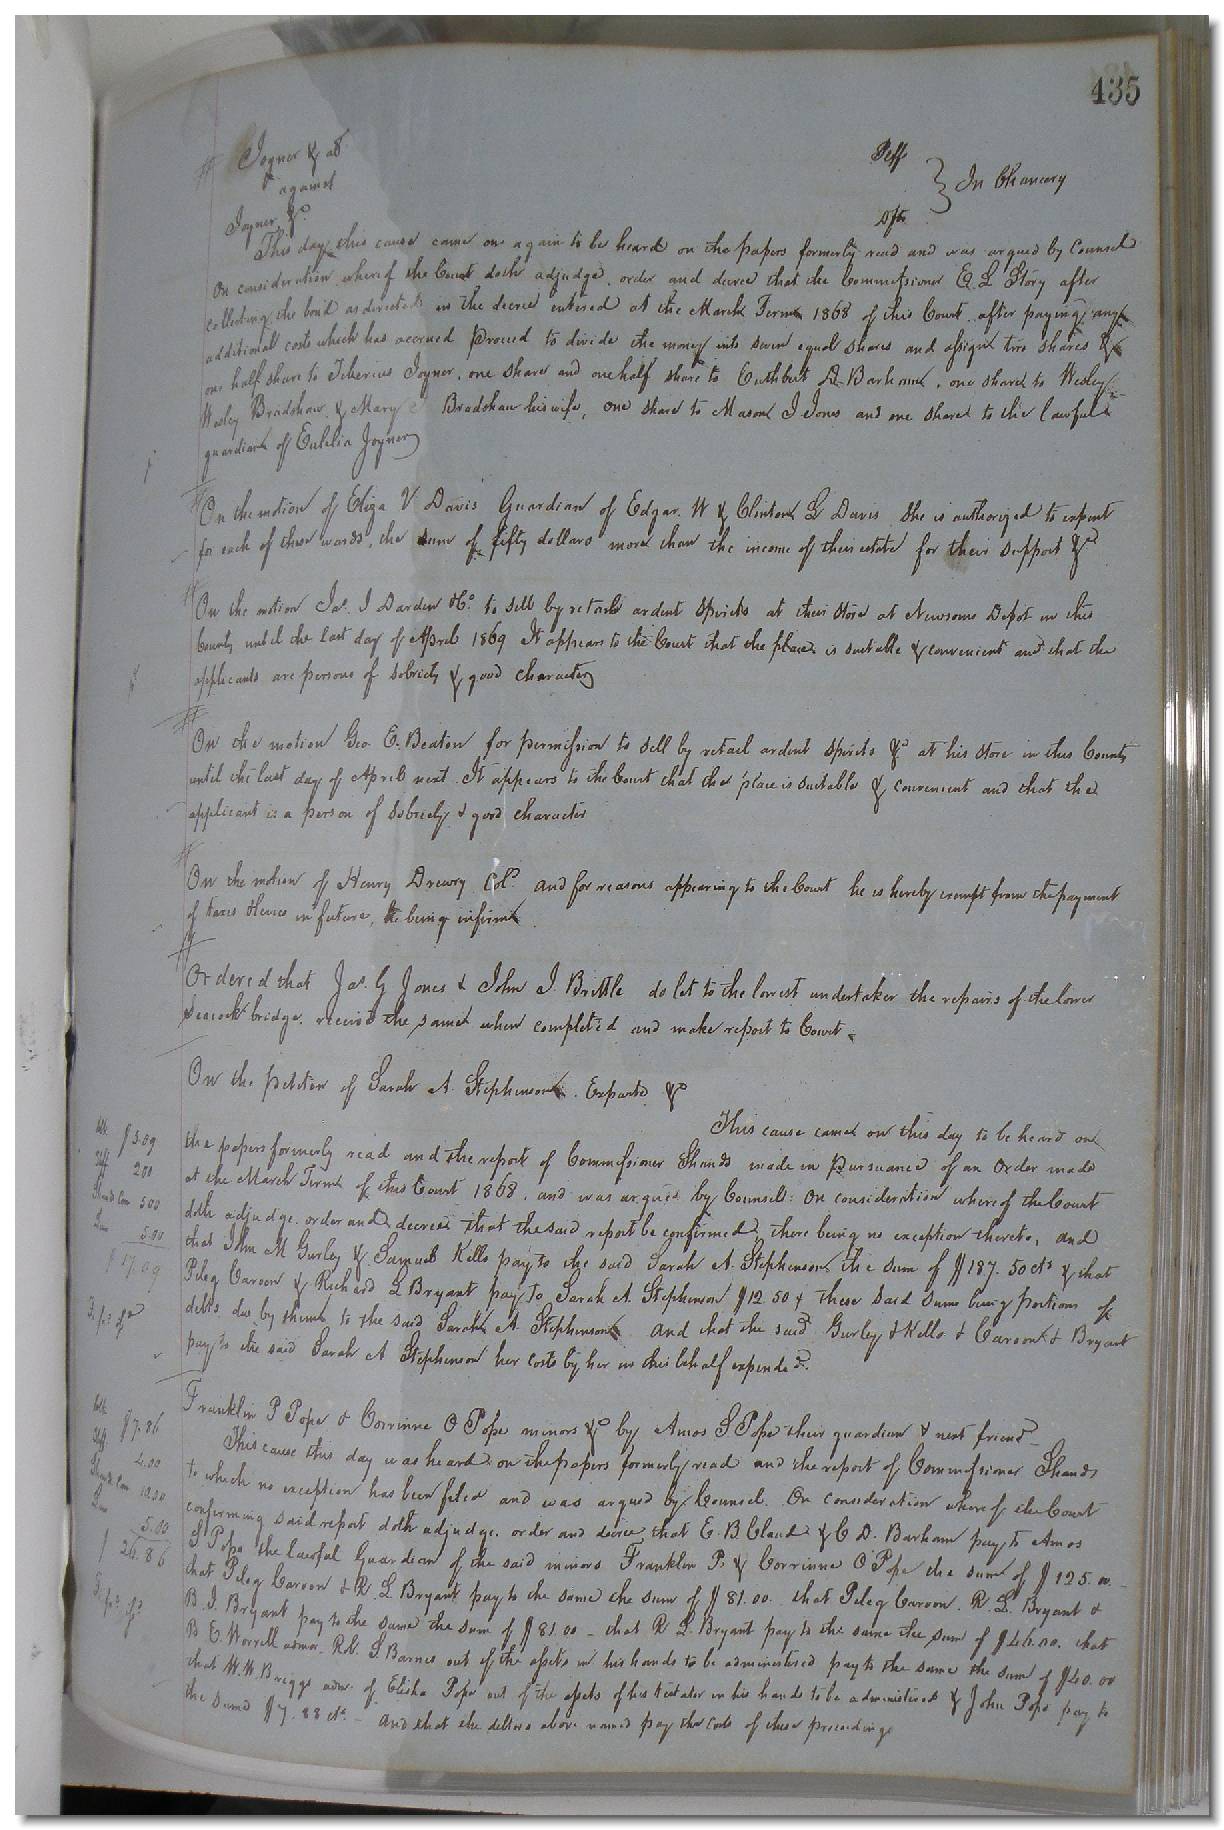 435
Joyner & als Plffs
against } In Chancery
Joyner &c Dfts
This day this cause came on again to be heard on the papers formerly read and was argued by Counsel
On consideration whereof the Court doth adjudge, order and decree that the Commissioner E. L Story after
collecting the bond as directed in the decree entered at the March Term 1868 of this Court after paying any
additional costs which has accrued Proceed to divide the money into seven equal shares and assign two shares &
one half share to Tiberius Joyner, one share and one half share to Cuthbert D Barham, one share to Wesley
Wesley Bradshaw & Mary Bradshaw his wife, one share to Mason J Jones and one share to the lawful
guardian of Eulelia Joyner
On the motion of Eliza V Davis Guardian of Edgar W & Clinton L Davis She is authorized to expent
for each of these wards, the sum of fifty dollars more than the income of their estate for their support &c
On the motion Jas. J Darden &Co. to sell by retail ardent spirits at their store at Newsoms Depot in this
County until the last day of April 1869 It appears to the Court that the place is suitable & convenient and that the
applicants are persons of sobriety & good character
On the motion Geo. E. Beaton for permission to sell by retail ardent spirits &c at his store in this County
until the last day of April next. It appears to the Court that the place is suitable & convenient and that the
applicant is a person of sobriety & good character
On the motion of Henry Drewry Cold. and for reasons appearing to the Court he is hereby exempt from the payment
of taxes & levies in future, he being infirm
Ordered that Jas. G Jones & John J. Brittle do let to the lowest undertaker the repairs of the lower
Seacock bridge, receive the same when completed and make report to Court.
On the petition of Sarah A. Stephenson. Exparte &c
This cause came on this day to be heard on
the papers formerly read and the report of Commissioner Shands made in pursuance of an Order made
at the March Term of this Court 1868, and was argued by Counsel: On consideration whereof the Court
doth adjudge, order and decree that the said report be confirmed, there being no exception thereto, and
that John M Gurley & Samuel Kello pay to the said Sarah A. Stephenson the sum of $187.50 cts & that
Peleg Caroon & Richard L Bryant pay to Sarah A Stephenson $12.50 & these said sums being portions of
debts due by them to the said Sarah A Stephenson And that the said Gurley & Kello & Caroon & Bryant
pay to the said Sarah A Stephenson her costs by her in this behalf expended.
Clk $5.09
Shff 2.00
Shands Com 5.00
5.00
$17.09
Franklin P Pope & Corrinne O Pope minors &c by Amos S Pope their guardian & next friend
This cause this day was heard on the papers formerly read and the report of Commissioner Shands
to which no exception has been filed and was argued by Counsel. On consideration whereof the Court
confirming said report doth adjudge, order and decree that E. B Claud & C D. Barham pay to Amos
S Pope the lawful Guardian of the said minors Franklin P. & Corrinne O Pope the sum of $125.00
that Peleg Caroon & R. L Bryant pay to the same the sum of $81.00. that Peleg Caroon, R. L. Bryant &
B. J. Bryant pay to the same the sum of $81.00 - that R L. Bryant pay to the same the sum of $46.00, that
B E. Worrell admor. Ro. S. Barnes out of the assets in his hands to be administered pay to the same the sum of $40.00
that W. W. Briggs admr. of Elisha Pope out of the assets of his testator in his hands to be administered & John Pope pay to
the same $7.88 cts. - And that the debtors above named pay the costs of these proceedings
Clk $7.86
Shff 4.00
Shands Com 10.00
5.00
$26.86